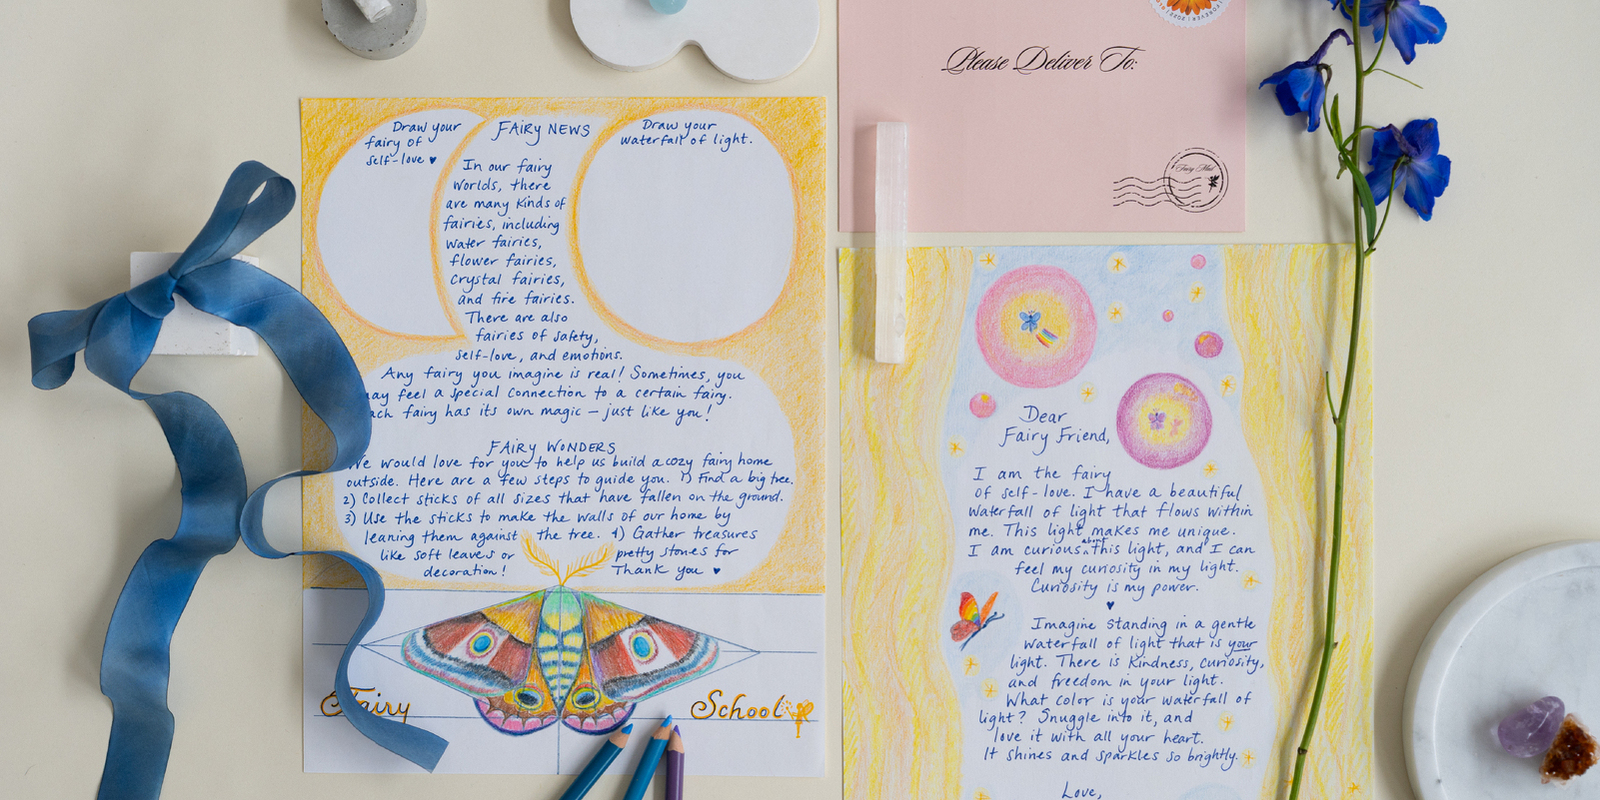 Draw your
fairy of
self-love ♥
FAIRY NEWS
Draw your
waterfall of light.
In our fairy
worlds, there
are many kinds of
fairies, including
water fairies,
flower fairies,
crystal fairies,
and fire fairies.
There are also
fairies of safety,
self-love, and emotions.
Any fairy you imagine is real! Sometimes, you
feel a special connection to a certain fairy.
fairy has its own magic – just like you!
FAIRY WONDERS
We would love for you to help us build a cozy fairy home
outside. Here are a few steps to guide you. 1) Find a big tree.
2) Collect sticks of all sizes that have fallen on the ground.
3) Use the sticks to make the walls of our home by
leaning them against the tree. 4) Gather treasures
like soft leaves or pretty stones for
decoration! Thank you ♥
Fairy School
Please Deliver To:
FOREVER
Fairy Mail
Dear
Fairy Friend,
I am the fairy
of self-love. I have a beautiful
waterfall of light that flows within
me. This light makes me unique.
I am curious about this light, and I can
feel my curiosity in my light.
Curiosity is my power.
♥
Imagine standing in a gentle
waterfall of light that is your
light. There is kindness, curiosity,
and freedom in your light.
What color is your waterfall of
light? Snuggle into it, and
love it with all your heart.
It shines and sparkles so brightly.
Love,